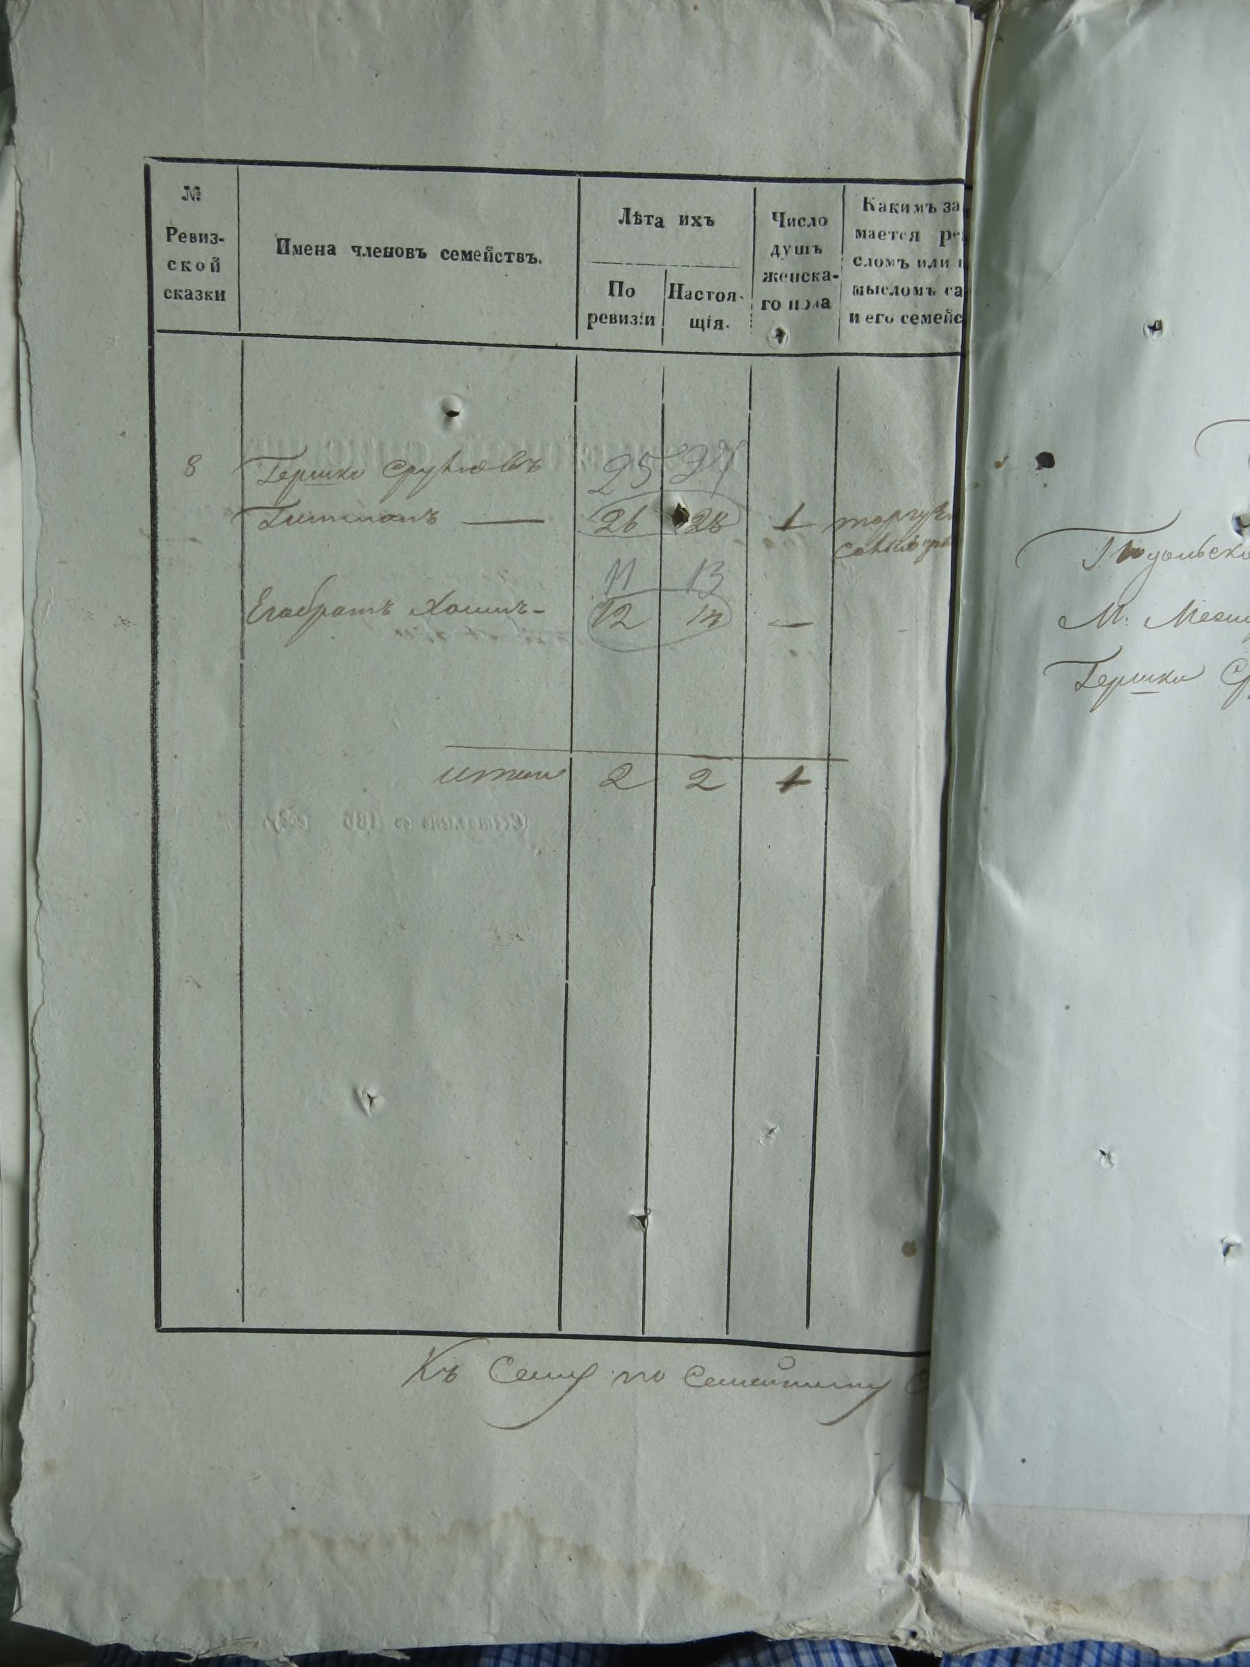 №
Ревиз-
ской
сказки
Имена членовъ семействъ.
Лѣта ихъ
По
ревизіи
Настоя-
щія.
Число
душъ
женска-
го пола
Какимъ за
мается ре
сломъ или п
мысломъ са
и его семейс
8 Гершко Сруловъ 25 27
Гитманъ — 26 28 1 торгуе
11 13
Его братъ Хаимъ - 12 14 —
итого 2 2 1
Къ Сему по Семейному С
Подольско
М.
Гершко Ср